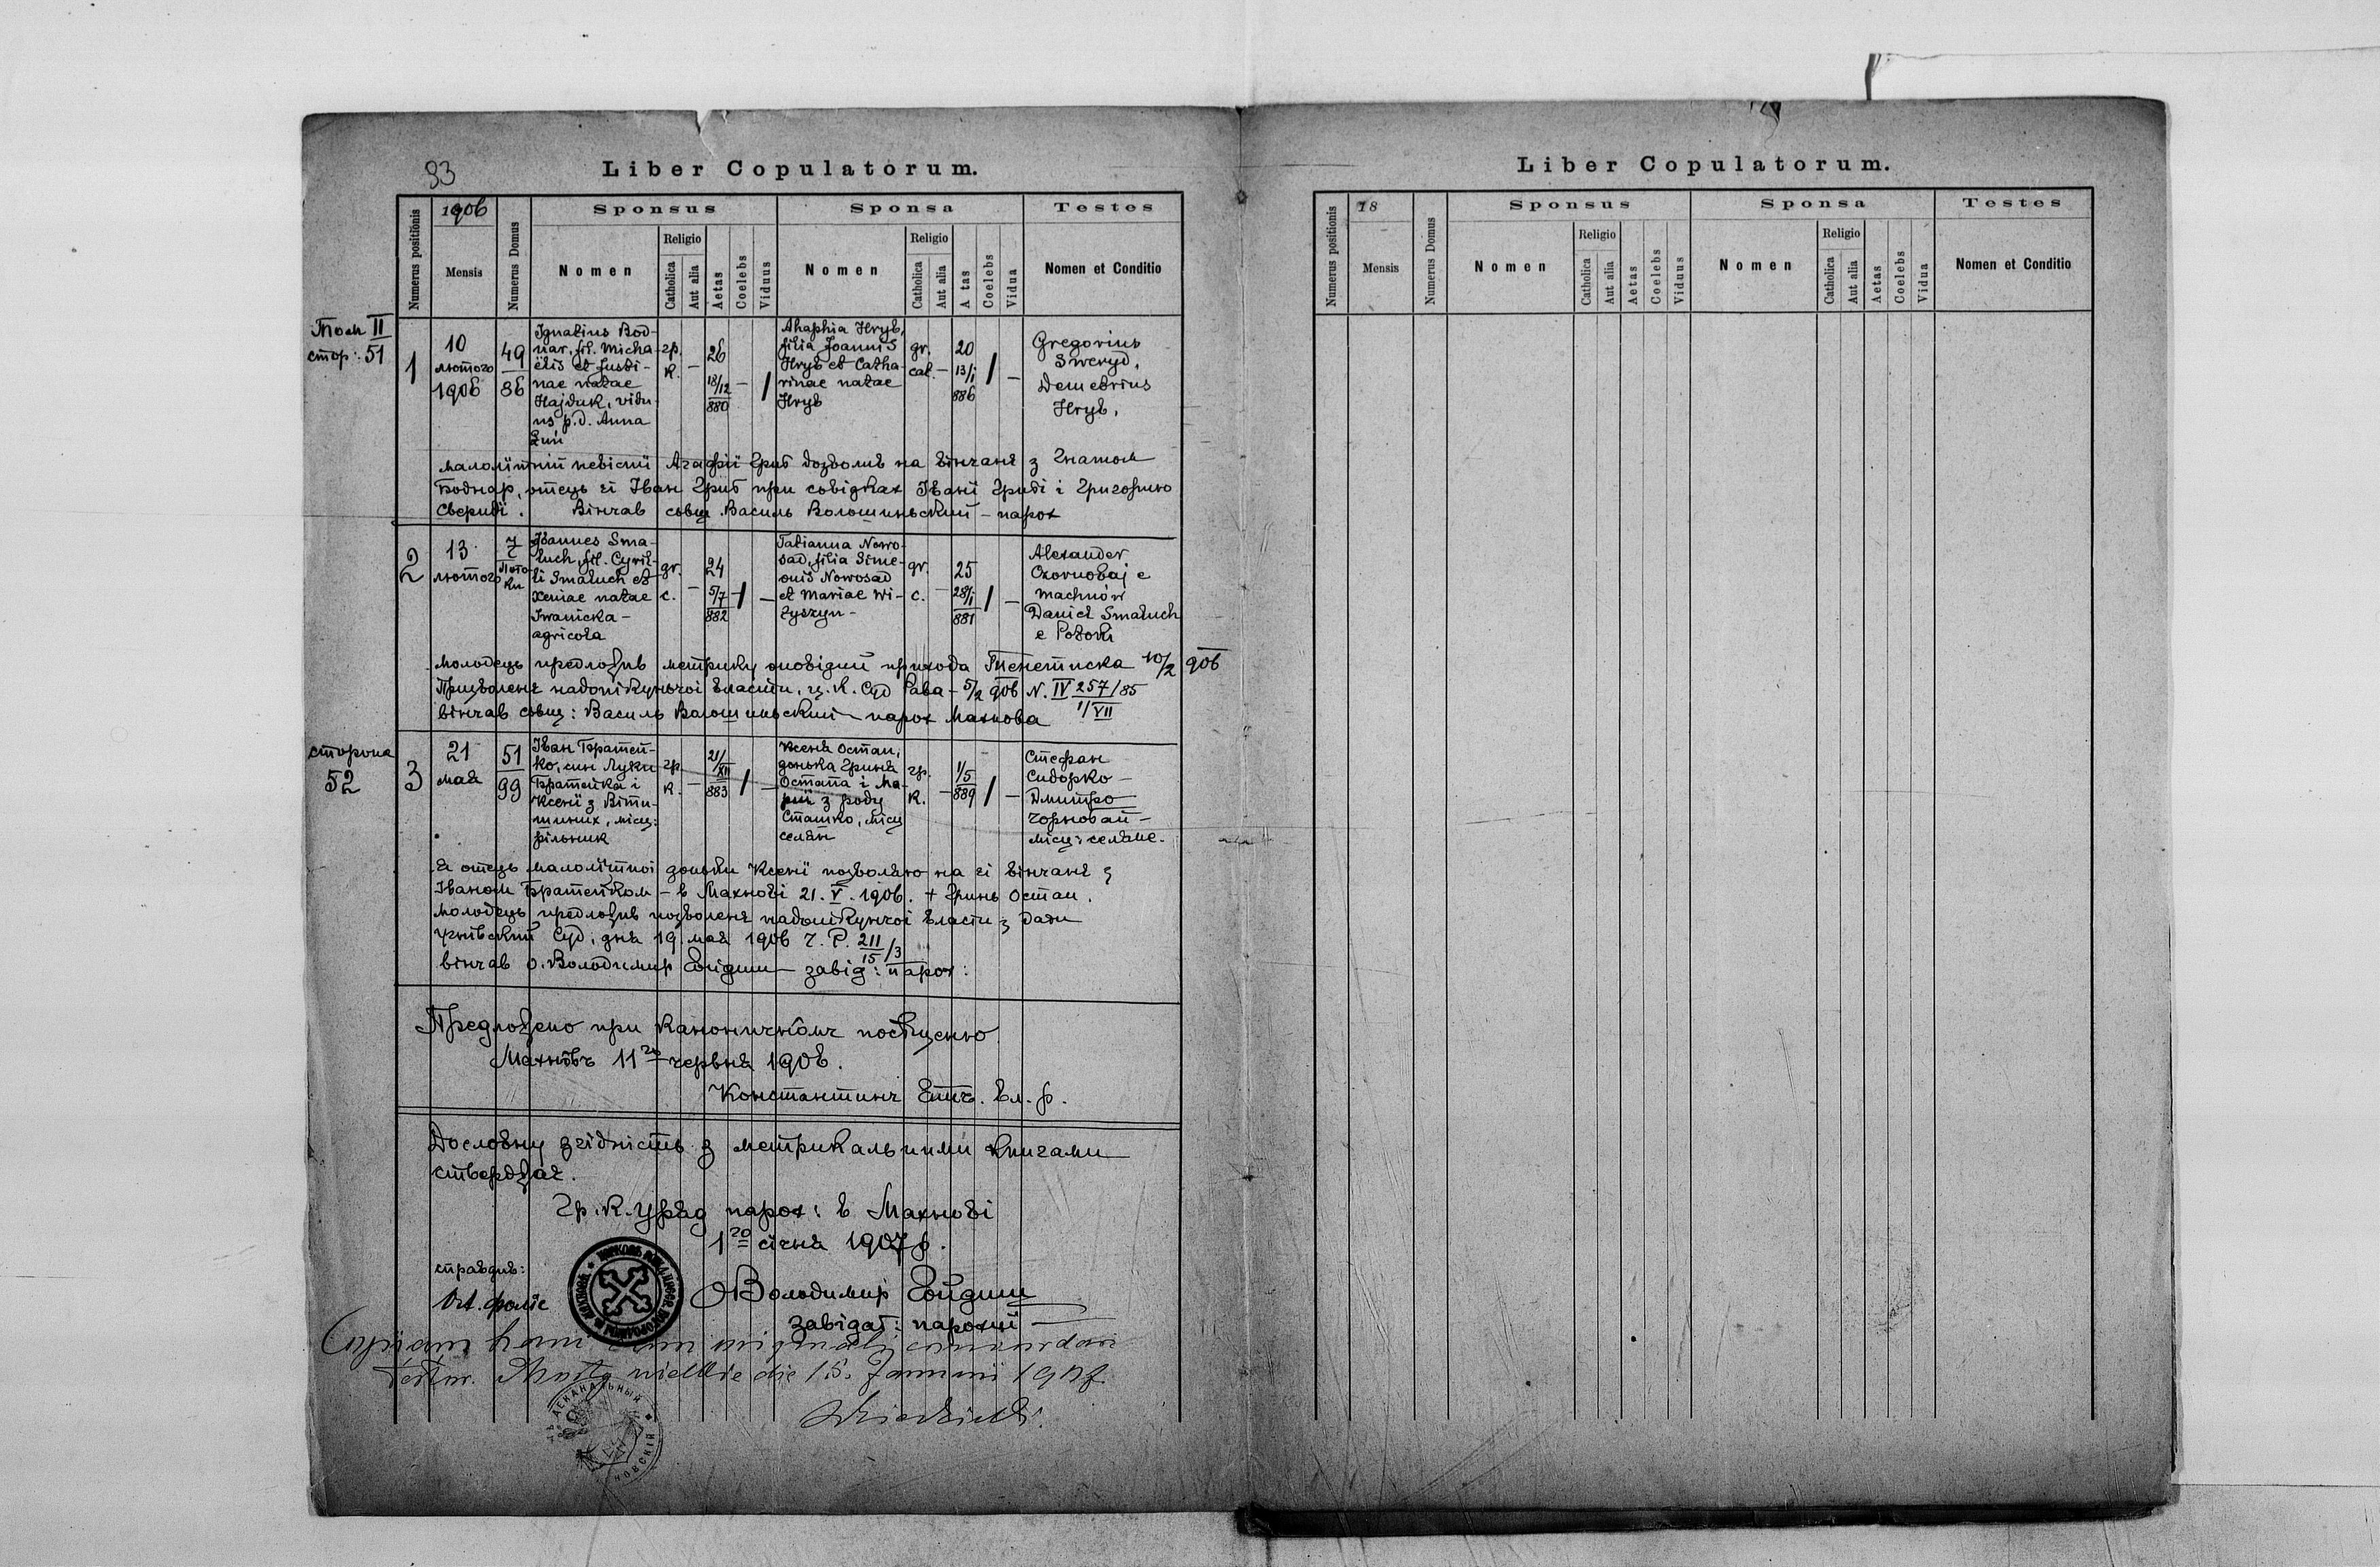 33
Liber Copulatorum.
Numerus positionis
1906
Mensis
Numerus Domus
Sponsus
Nomen
Religio
Catholica
Aut alia
Aetas
Coelebs
Viduus
Sponsa
Nomen
Religio
Catholica
Aut alia
A tas
Coelebs
Vidua
Testes
Nomen et Conditio
Том II
стор: 51
1
10
лютого
1906
49
86
Ignatius Bod-
nar, fil. Micha-
ëlis et Justi-
nae natae
Hajduk, vidu-
us p.d. Anna
гр.
к.
–
26
18/12
880
–
/
Ahaphia Hryb,
filia Joannis
Hryb et Catha-
rinae natae
Hryb
gr.
cat.
–
20
13/I
886
/
–
Gregorius
Sweryd,
Demetrius
Hryb,
малолїтнїй невістї Агафії Гриб дозволив на вінчанє з Гнатом
Боднар, отець єї Іван Гриб при совідках Івані Гриді і Григорию
Свериді. Вінчав совщ. Василь Волошиньский – парох
2
13
лютого
7
Пото-
ки
Joannes Sma-
łuch, fil. Cyril-
li Smałuch et
Xeniae natae
Iwanicka –
agricola
gr.
c.
–
24
5/7
882
/
–
Tatianna Nowo-
sad, filia Sime-
onis Nowosad
et Mariae Wi-
zyszyn –
gr.
c.
–
25
28/I
881
/
–
Alexander
Czornobaj e
Machnów
Daniel Smałuch
e Potoki
молодець предложив метрику оповідий прихода Тенетиска 10/2 906
Призволенє надопікунчої власти, ц. к. Суд Рава – 5/2 906 N. IV 257/85
1/VII
вінчав совщ: Василь Волошиньский – парох Махнова
сторона
52
3
21
мая
51
99
Іван Братей-
ко, син Луки
Братейка і
Ксенї з Віти-
шиних, місц:
рільник
гр.
к.
–
21/XII
883
/
–
Ксеня Остап,
донька Гриня
Остапа і Ма-
риї з роду
Сташко, місц
селян
гр.
к.
–
1/5
889
/
–
Стефан
Сидорко –
Дмитро
Чорнобай –
місц: селяне.
Я отець малолїтної доньки Ксенї позволяю на єї вінчанє з
Іваном Братейком – в Махнові 21. V. 1906. + Гринь Остап.
Молодець предложив позволенє надопікунчої власти з дати
Угнівский Суд, дня 19. мая 1906 ч. P. 211/3
15
вінчав о. Володимир – завід: парох:
Предложено при каноничнôмъ посѣщенію
Махнôвъ 11го червня 1906.
Константинъ Еп. вл. р.
Дословну згідність з метрикальними книгами
стверджає.
Гр. к. Уряд парох: в Махнові
1го січня 1907 р.
справдив:
о Володимир
завідат: парохії
Copiam hanc cum originali concordari
testor. Mosty wielkie die 15. Januarii 1907.
Liber Copulatorum.
Numerus positionis
18
Mensis
Numerus Domus
Sponsus
Nomen
Religio
Catholica
Aut alia
Aetas
Coelebs
Viduus
Sponsa
Nomen
Religio
Catholica
Aut alia
Aetas
Coelebs
Vidua
Testes
Nomen et Conditio